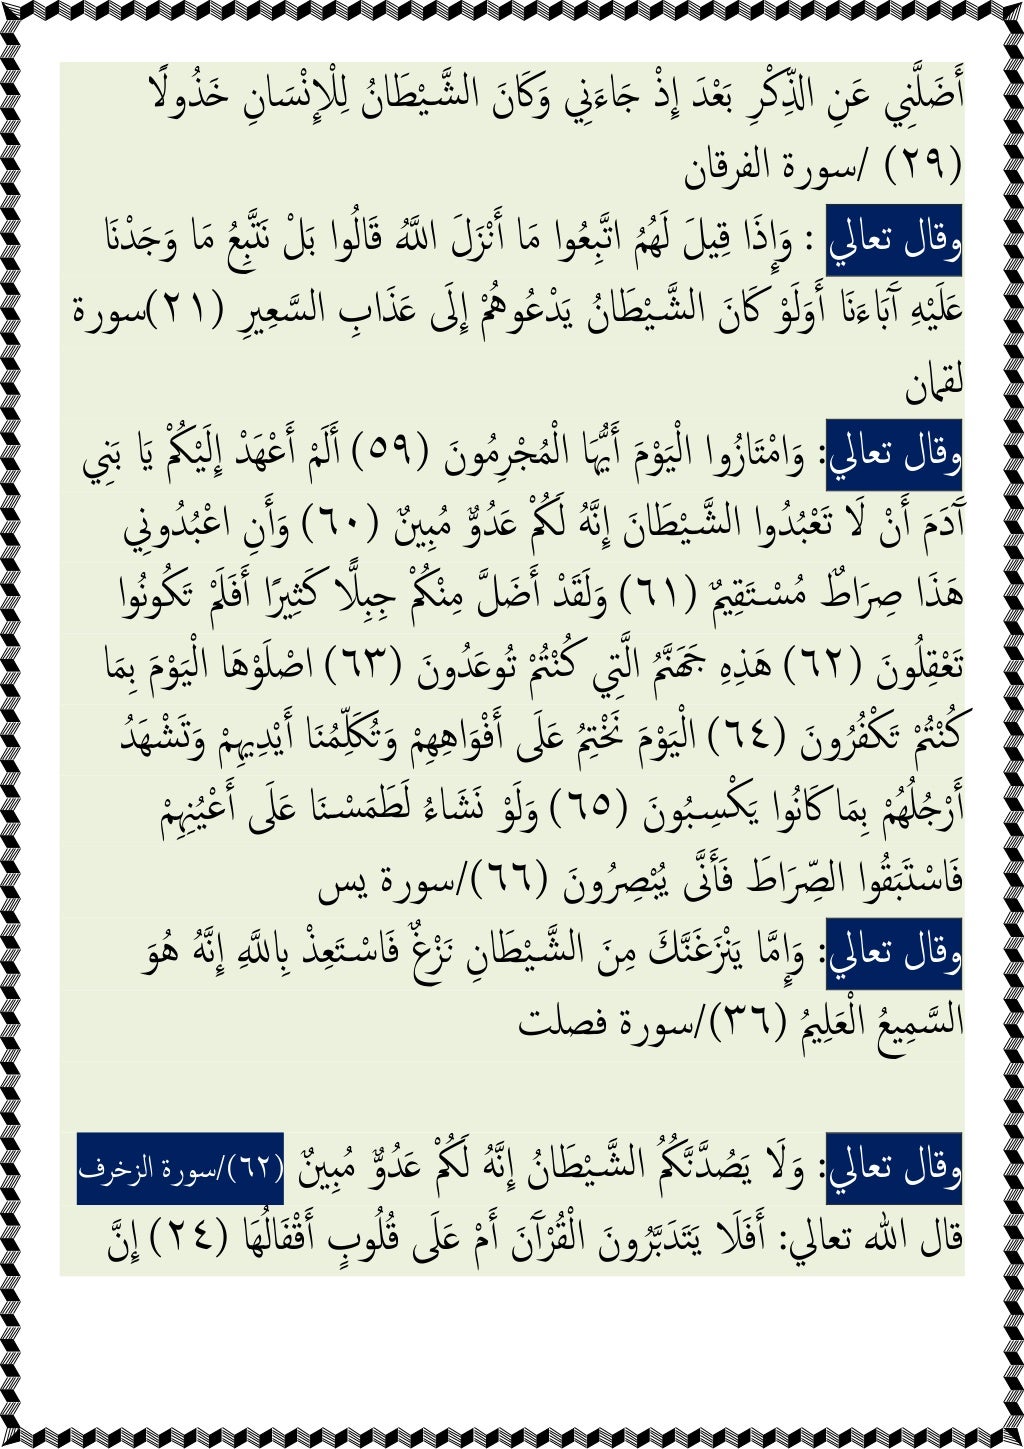 أَضَلَّنِي عَنِ الذِّكْرِ بَعْدَ إِذْ جَاءَنِي وَكَانَ الشَّيْطَانُ لِلْإِنْسَانِ خَذُولًا
(٢٩) /سورة الفرقان
وقال تعالي : وَإِذَا قِيلَ لَهُمُ اتَّبِعُوا مَا أَنْزَلَ اللَّهُ قَالُوا بَلْ نَتَّبِعُ مَا وَجَدْنَا
عَلَيْهِ آَبَاءَنَا أَوَلَوْ كَانَ الشَّيْطَانُ يَدْعُوهُمْ إِلَى عَذَابِ السَّعِيرِ (٢١)سورة
لقمان
وقال تعالي: وَامْتَازُوا الْيَوْمَ أَيُّهَا الْمُجْرِمُونَ (٥٩) أَلَمْ أَعْهَدْ إِلَيْكُمْ يَا بَنِي
آَدَمَ أَنْ لَا تَعْبُدُوا الشَّيْطَانَ إِنَّهُ لَكُمْ عَدُوٌّ مُبِينٌ (٦٠) وَأَنِ اعْبُدُونِي
هَذَا صِرَاطٌ مُسْتَقِيمٌ (٦١) وَلَقَدْ أَضَلَّ مِنْكُمْ جِبِلًّا كَثِيرًا أَفَلَمْ تَكُونُوا
تَعْقِلُونَ (٦٢) هَذِهِ جَهَنَّمُ الَّتِي كُنْتُمْ تُوعَدُونَ (٦٣) اصْلَوْهَا الْيَوْمَ بِمَا
كُنْتُمْ تَكْفُرُونَ (٦٤) الْيَوْمَ نَخْتِمُ عَلَى أَفْوَاهِهِمْ وَتُكَلِّمُنَا أَيْدِيهِمْ وَتَشْهَدُ
أَرْجُلُهُمْ بِمَا كَانُوا يَكْسِبُونَ (٦٥) وَلَوْ نَشَاءُ لَطَمَسْنَا عَلَى أَعْيُنِهِمْ
فَاسْتَبَقُوا الصِّرَاطَ فَأَنَّى يُبْصِرُونَ (٦٦)/سورة يس
وقال تعالي: وَإِمَّا يَنْزَغَنَّكَ مِنَ الشَّيْطَانِ نَزْغٌ فَاسْتَعِذْ بِاللَّهِ إِنَّهُ هُوَ
السَّمِيعُ الْعَلِيمُ (٣٦)/سورة فصلت
وقال تعالي: وَلَا يَصُدَّنَّكُمُ الشَّيْطَانُ إِنَّهُ لَكُمْ عَدُوٌّ مُبِينٌ (٦٢)/سورة الزخرف
قال الله تعالي: أَفَلَا يَتَدَبَّرُونَ الْقُرْآَنَ أَمْ عَلَى قُلُوبٍ أَقْفَالُهَا (٢٤) إِنَّ